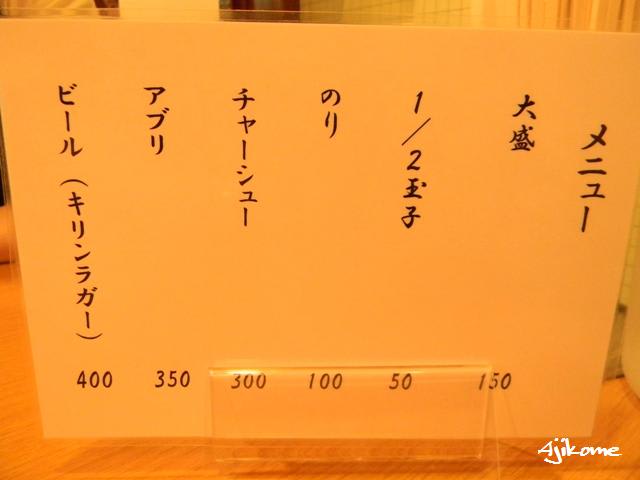 メニュー
大盛 150
1/2玉子 50
のり 100
チャーシュー 300
アブリ 350
ビール(キリンラガー) 400
Ajikome